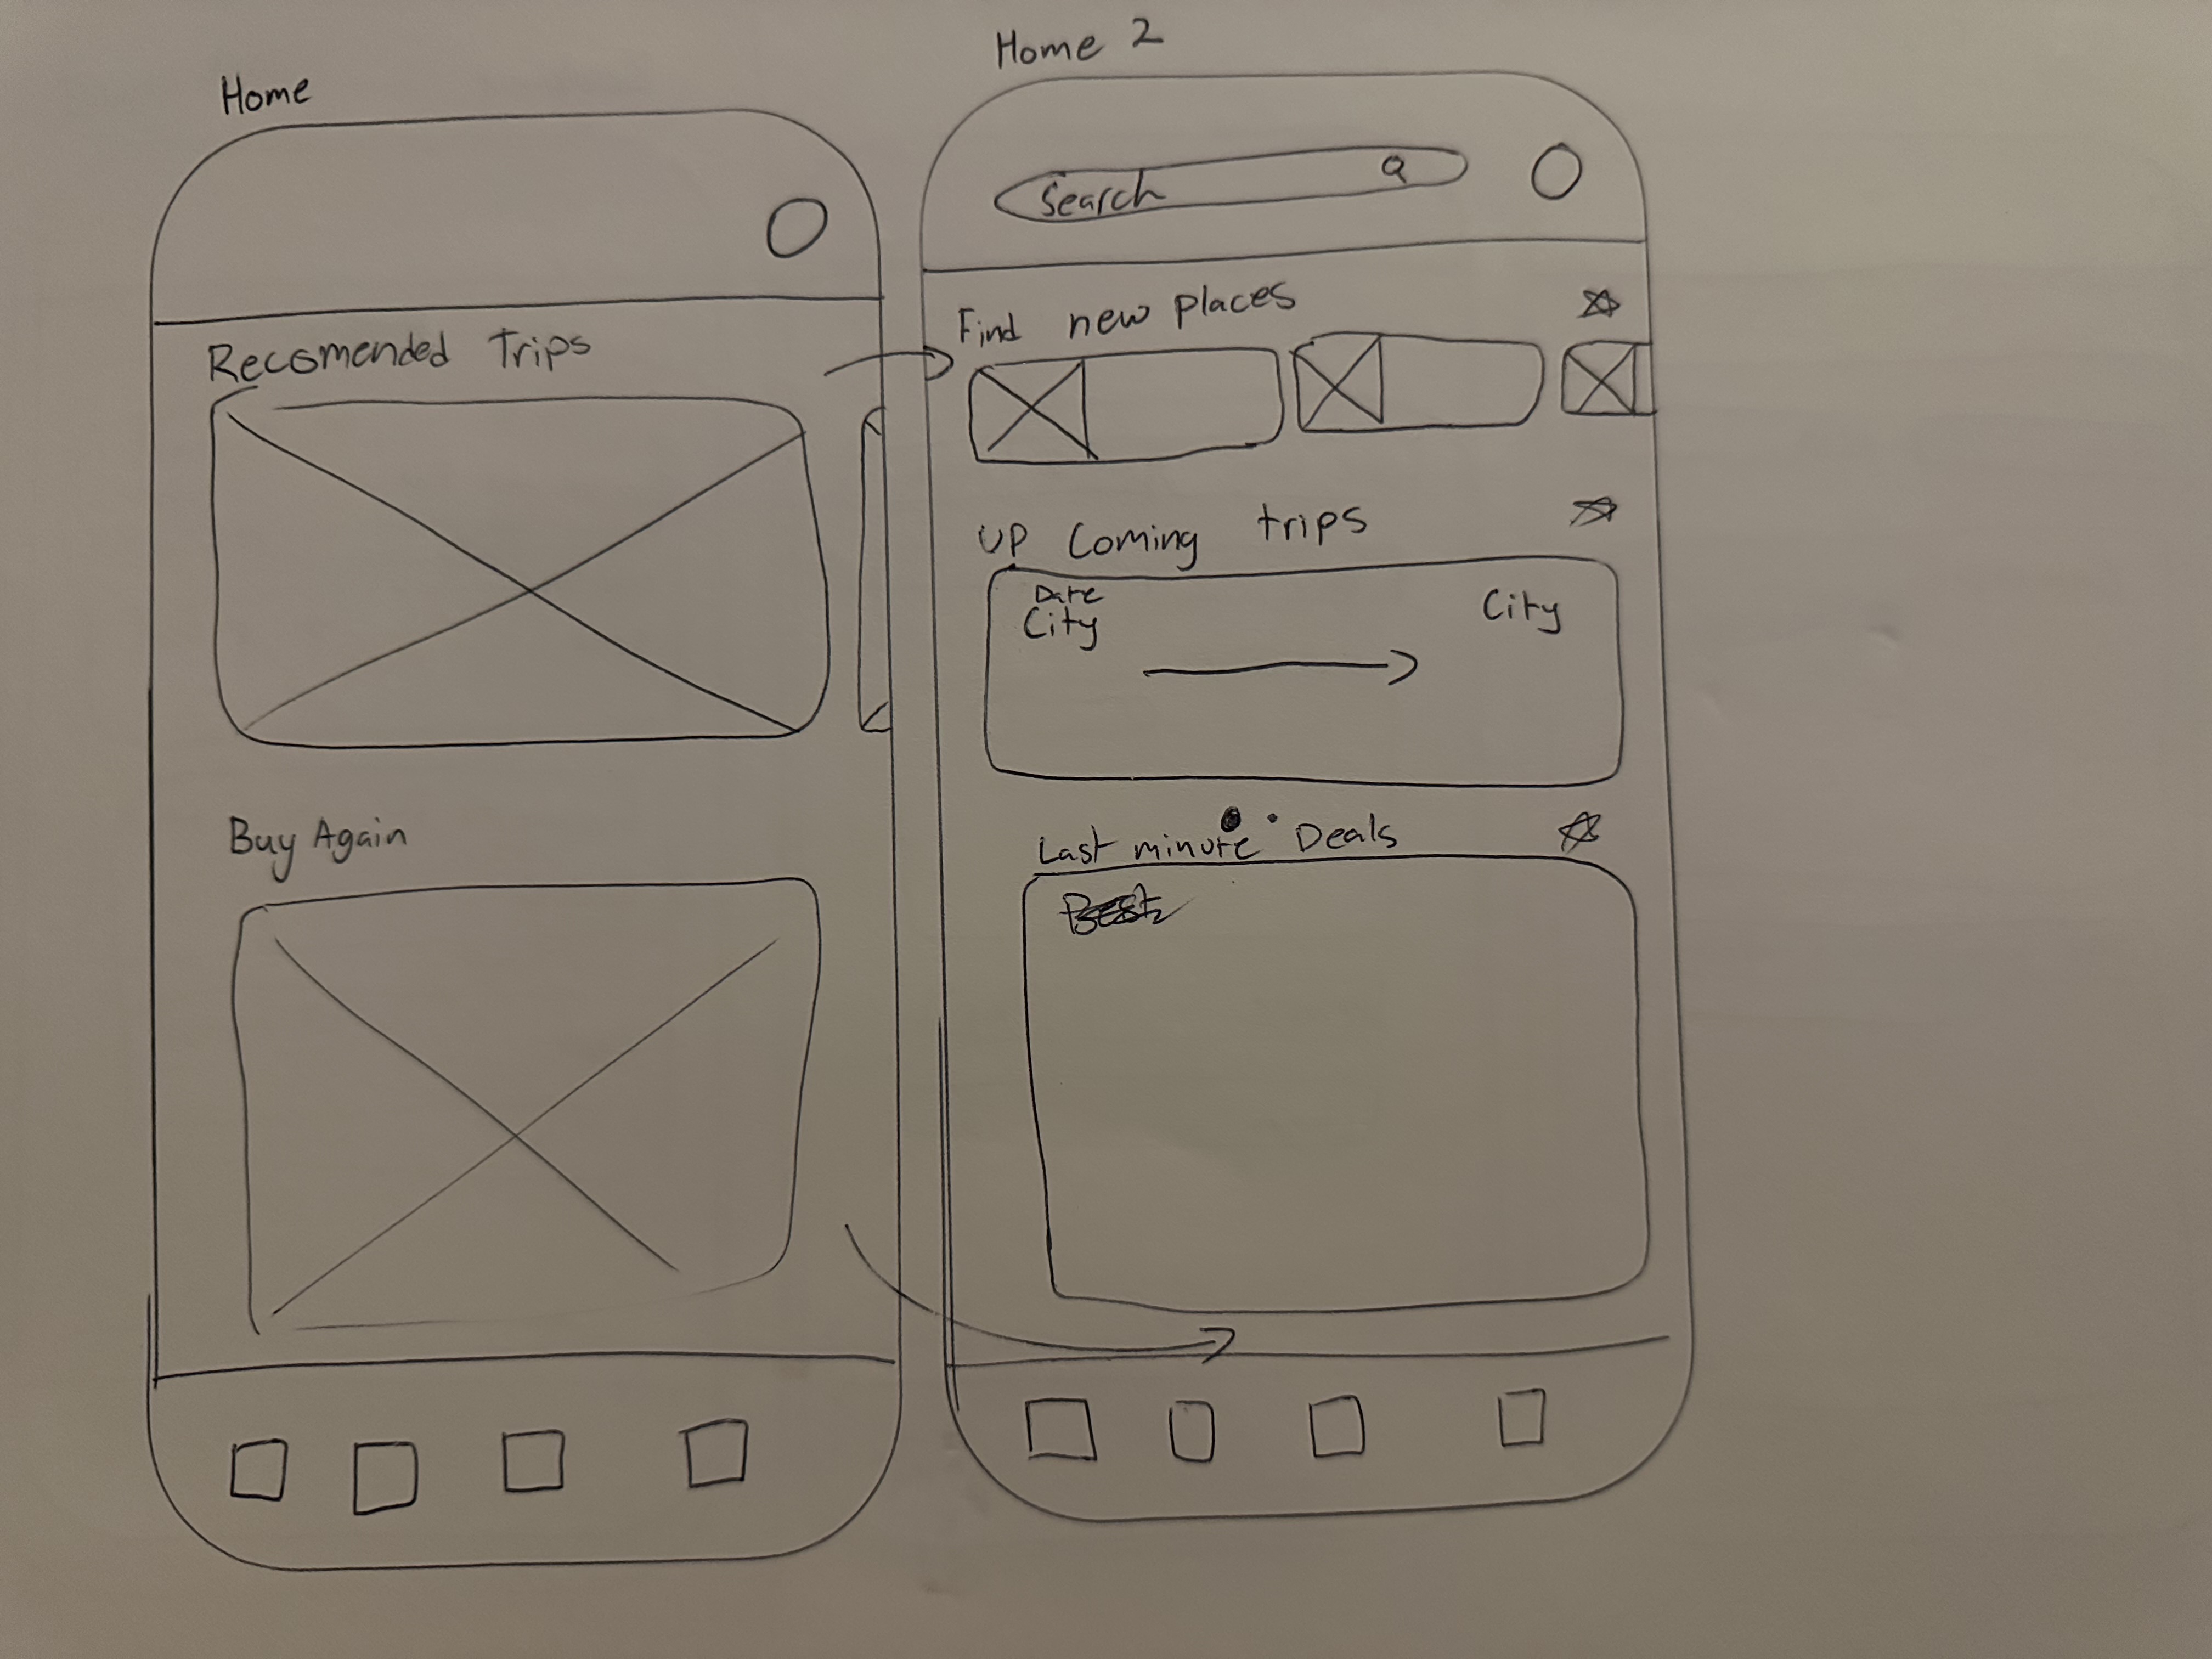 Home
Recomended Trips
Buy Again
Home 2
Search
Find new places
Up Coming trips
Date
City
City
Last minute Deals